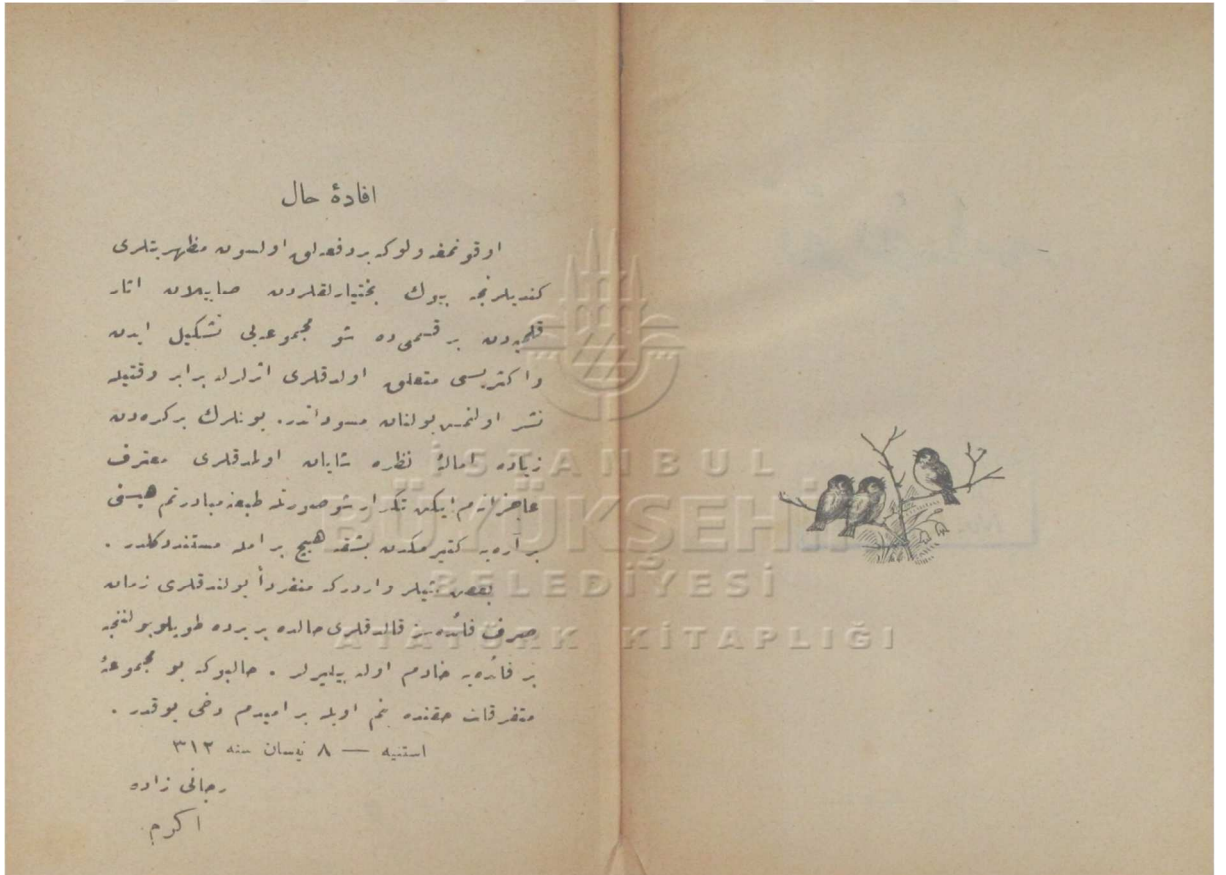 افادهٔ حال
اوقونمغه ولوكه بر دفعه‌لق اولسون مظهريتلرى
كنديلرنجه بيوك بختيارلقلردن صاييلان اثار
قلميه‌دن بر قسمى ده شو مجموعه‌يى تشكيل ايدن
واكثريسى متعلق اولدقلرى اثرلرله برابر وقتيله
نشر اولنمش بولنان مسوداتدر. بونلرك بر كره‌دن
زياده امالهٔ نظره شايان اولمدقلرى معترف
عاجزانه‌م ايكن تكرار شو صورتله طبعنه مبادرتم هپسنى
بر آره‌يه كتيرمكدن بشقه هيچ بر امله مستند دكلدر .
بعض شيلر واردركه منفرداً بولندقلرى زمان
صرف فائده‌سز قالدقلرى حالده بر يرده طوپلو بولننجه
بر فائده‌يه خادم اوله بيليرلر . حالبوكه بو مجموعهٔ
متفرقات حقنده بنم اويله بر اميدم دخى يوقدر .
استنيه — ٨ نيسان سنه ٣١٢
رجائى زاده
اكرم
İSTANBUL
BÜYÜKŞEHİR
BELEDİYESİ
ATATÜRK KİTAPLIĞI